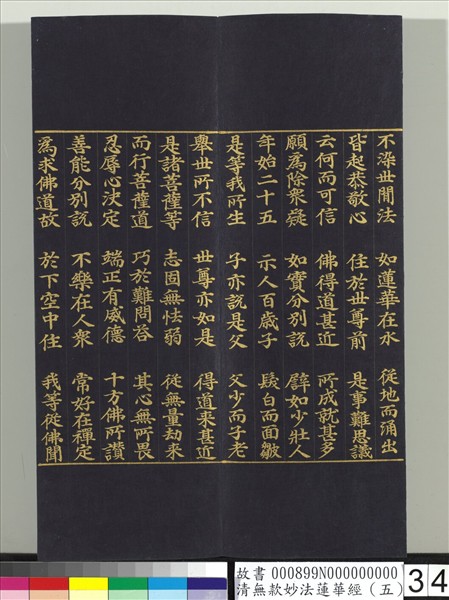 不染世間法　如蓮華在水　從地而涌出
皆起恭敬心　住於世尊前　是事難思議
云何而可信　佛得道甚近　所成就甚多
願為除衆疑　如實分別說　譬如少壯人
年始二十五　示人百歲子　髮白而面皺
是等我所生　子亦說是父　父少而子老
舉世所不信　世尊亦如是　得道來甚近
是諸菩薩等　志固無怯弱　從無量劫來
而行菩薩道　巧於難問答　其心無所畏
忍辱心決定　端正有威德　十方佛所讚
善能分別說　不樂在人衆　常好在禪定
為求佛道故　於下空中住　我等從佛聞
故書 000899N000000000
清無款妙法蓮華經（五）
34